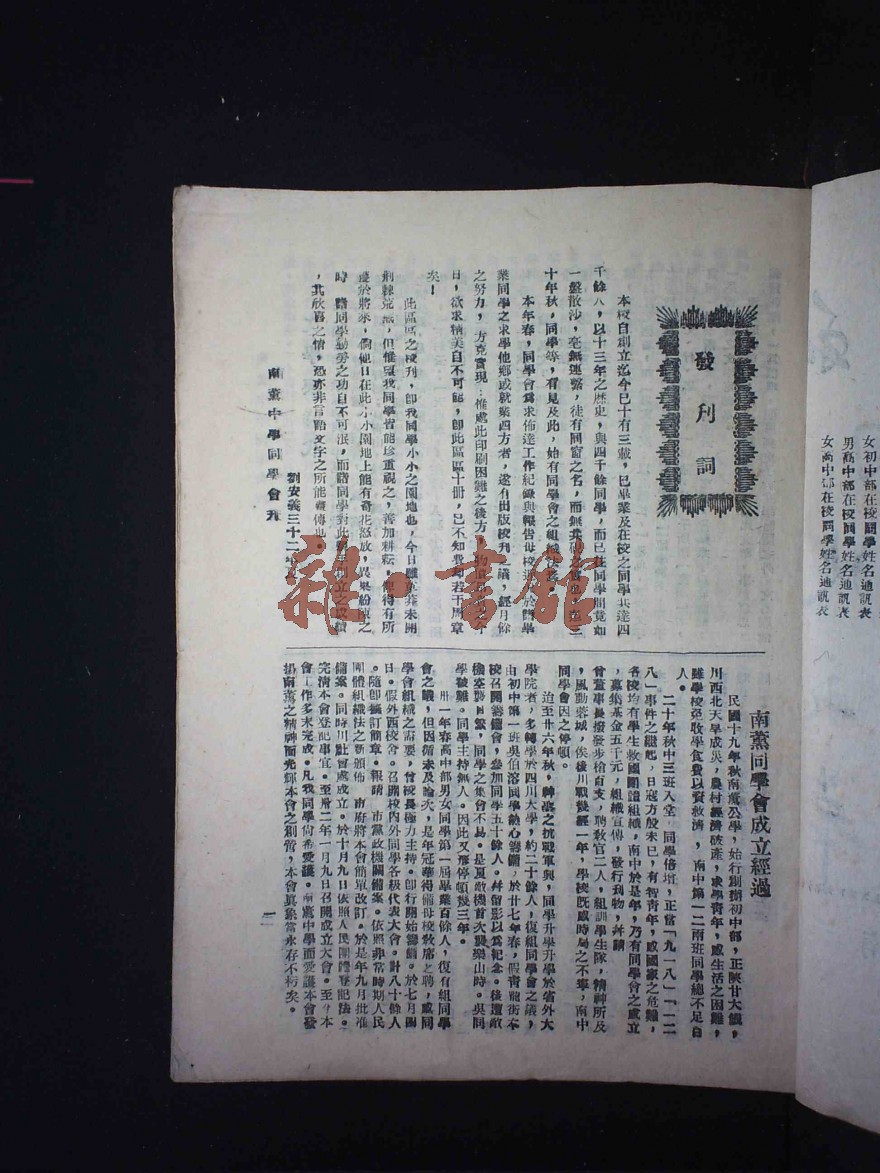 發刊詞
本校自創立迄今已十有三載,已畢業及在校之同學共達四
千餘人,以十三年之歷史,與四千餘同學,而已往同學間竟如
一盤散沙,毫無連繫,徒有同窗之名,而無
十年秋,同學等,有見及此,始有同學會之組織
本年春,同學會爲求佈達工作紀錄與報告母校
業同學之求學他鄉或就業四方者,遂有出版校刊之議,經月餘
之努力,方克實現;惟處此印刷困難之後方,
日,欲求精美自不可能,卽此區區十冊,已不知費却若干周章
矣!
此區區之校刊,卽我同學小小之園地也,今日雖
荆棘荒蕪,但惟望我同學皆能珍重視之,善加耕耘,
慶於將來,倘他日在此小小園地上能有奇花怒放,異果紛陳之
時,諸同學勤勞之功自不可泯,而諸同學對此
,其欣喜之情,恐亦非言語文字之所能
劉安義三十二年
南薰中學同學會刊
南薰同學會成立經過
民國十九年秋南薰公學,始行創辦初中部,正陝甘大饑,
川西北天旱成災,農村經濟破產,求學靑年,感生活之困難,
雖學校免收學食費以資救濟,南中第一二兩班同學總不足百
人。
二十年秋中三班入堂,同學倍增,正當「九一八」「一二
八」事件之繼起,日寇方殷未已,有智靑年,感國家之危難,
各校均有學生救國團體組織,南中於是年,乃有同學會之成立
,募集基金五千元,組織宣傳,發行刋物,幷請
曾董事長撥發步槍百支,聘敎官二人,組訓學生隊,精神所及
,風動蓉城,俟後川戰幾經一年,學校旣感時局之不寧,南中
同學會因之停頓。
迨至廿六年秋,神聖之抗戰軍興,同學升學升學於省外大
學院者,多轉學於四川大學,約二十餘人,復組同學會之議,
由初中第一班吳伯溶同學熱心籌備,於廿七年春,假靑龍街本
校召開籌備會,參加同學五十餘人。幷留影以爲紀念。後遭敵
機空襲日繁,同學之集會不易。是夏敵機首次襲樂山時。吳同
學被難。同學主持無人。因此又形停頓幾三年。
卅一年春高中部男女同學第一屆畢業百餘人,復有組同學
會之議,但因循未及論次,是年冠華得備母校敎席之聘,感同
學會組織之需要,曾校長極力主持。卽行開始籌備。於七月
日。假外西校舍。召開校內外同學各級代表大會。計八十餘人
。隨卽擬訂簡章。報請 市黨政機關備案。依照非常時期人民
團體組織法之新頒佈 市府將本會簡單改訂。於是年九月批准
備案。同時川監會處成立。於十月九日依照人民團體登記法。
完淸本會登記事宜。至卅二年一月九日召開成立大會。至今本
會工作多未完成。凡我同學尙希愛護。南薰中學而愛護本會發
揚南薰之精神而光輝本會之創管,本會眞象當永存不朽矣。
一
女初中部在校同學姓名通訊表
男高中部在校同學姓名通訊表
女高中部在校同學姓名通訊表
雜·書館